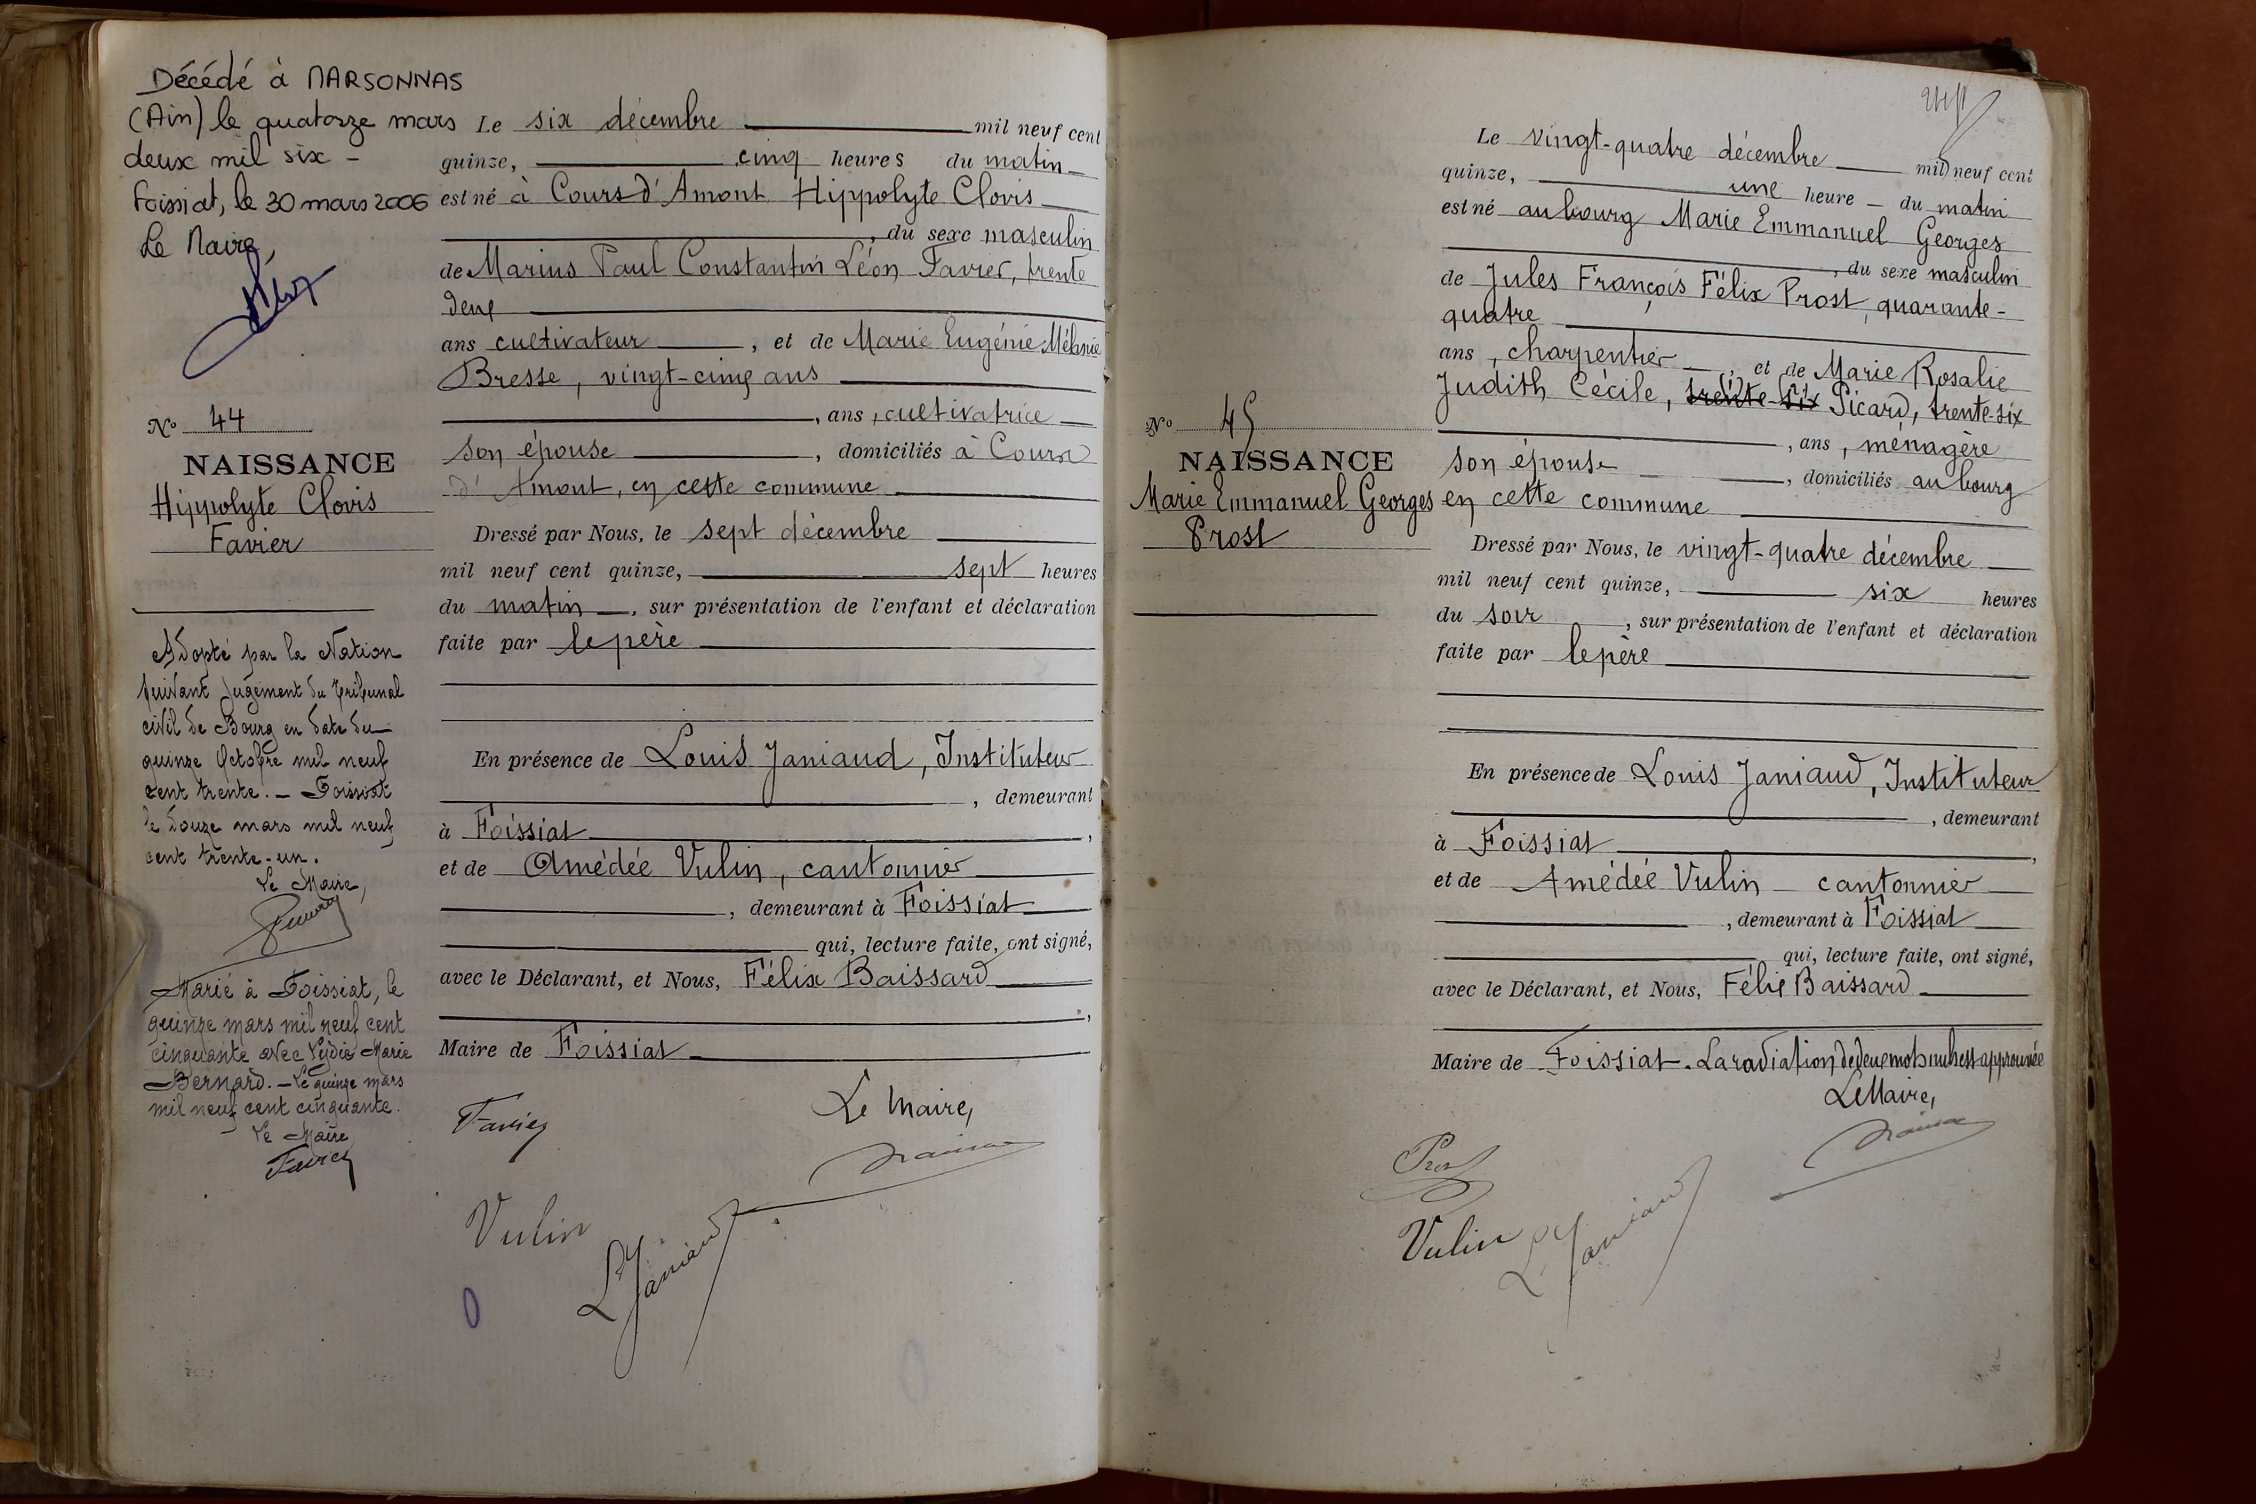 Décédé à MARSONNAS
(Ain) le quatorze mars
deux mil six -
Foissiat, le 30 mars 2006
Le Maire,
No 44
NAISSANCE
Hippolyte Clovis
Favier
Adopté par la Nation
suivant jugement du tribunal
civil de Bourg en date du
quinze Octobre mil neuf
cent trente. - Foissiat
le douze mars mil neuf
cent trente-un.
Le Maire,
Marié à Foissiat, le
quinze mars mil neuf cent
cinquante avec Lydie Marie
Bernard. - Le quinze mars
mil neuf cent cinquante.
Le Maire
Favier
Le six décembre mil neuf cent
quinze, cinq heures du matin
est né à Cours d'Amont Hippolyte Clovis
, du sexe masculin
de Marius Paul Constantin Léon Favier, trente
deux
ans cultivateur, et de Marie Eugénie Mélanie
Bresse, vingt-cinq ans
, ans, cultivatrice
son épouse, domiciliés à Cours
d'Amont, en cette commune
Dressé par Nous, le sept décembre
mil neuf cent quinze, sept heures
du matin, sur présentation de l'enfant et déclaration
faite par le père
En présence de Louis Janiaud, Instituteur
, demeurant
à Foissiat,
et de Amédée Vulin, cantonnier
, demeurant à Foissiat
qui, lecture faite, ont signé,
avec le Déclarant, et Nous, Félix Baissard
,
Maire de Foissiat
Le Maire,
Favier
Vulin
L Janiaud
No 45
NAISSANCE
Marie Emmanuel Georges
Prost
Le vingt-quatre décembre mil neuf cent
quinze, une heure - du matin
est né au bourg Marie Emmanuel Georges
, du sexe masculin
de Jules François Félix Prost, quarante-
quatre
ans, charpentier, et de Marie Rosalie
Judith Cécile, trente-six Picard, trente-six
, ans, ménagère
son épouse, domiciliés au bourg
en cette commune
Dressé par Nous, le vingt-quatre décembre
mil neuf cent quinze, six heures
du soir, sur présentation de l'enfant et déclaration
faite par le père
En présence de Louis Janiaud, Instituteur
, demeurant
à Foissiat,
et de Amédée Vulin cantonnier
, demeurant à Foissiat
qui, lecture faite, ont signé,
avec le Déclarant, et Nous, Félix Baissard
Maire de Foissiat. La radiation de deux mots nuls est approuvée
Le Maire,
Prost
Vulin
L Janiaud